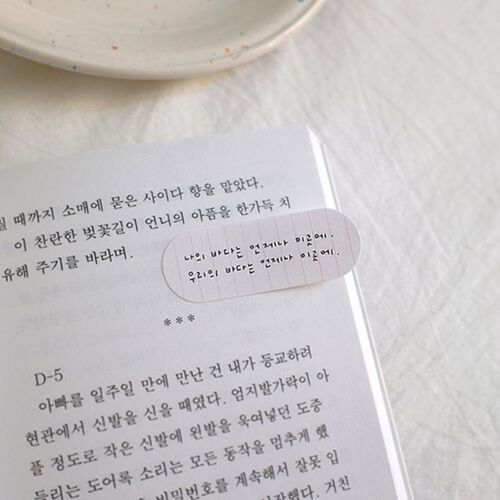 릴 때까지 소매에 묻은 사이다 향을 맡았다.
이 찬란한 벚꽃길이 언니의 아픔을 한가득 치
유해 주기를 바라며.
나의 바다는 언제나 이곳에.
우리의 바다는 언제나 이곳에.
***
D-5
아빠를 일주일 만에 만난 건 내가 등교하려
현관에서 신발을 신을 때였다. 엄지발가락이 아
플 정도로 작은 신발에 왼발을 욱여넣던 도중
들리는 도어록 소리는 모든 동작을 멈추게 했
비밀번호를 계속해서 잘못 입
거친